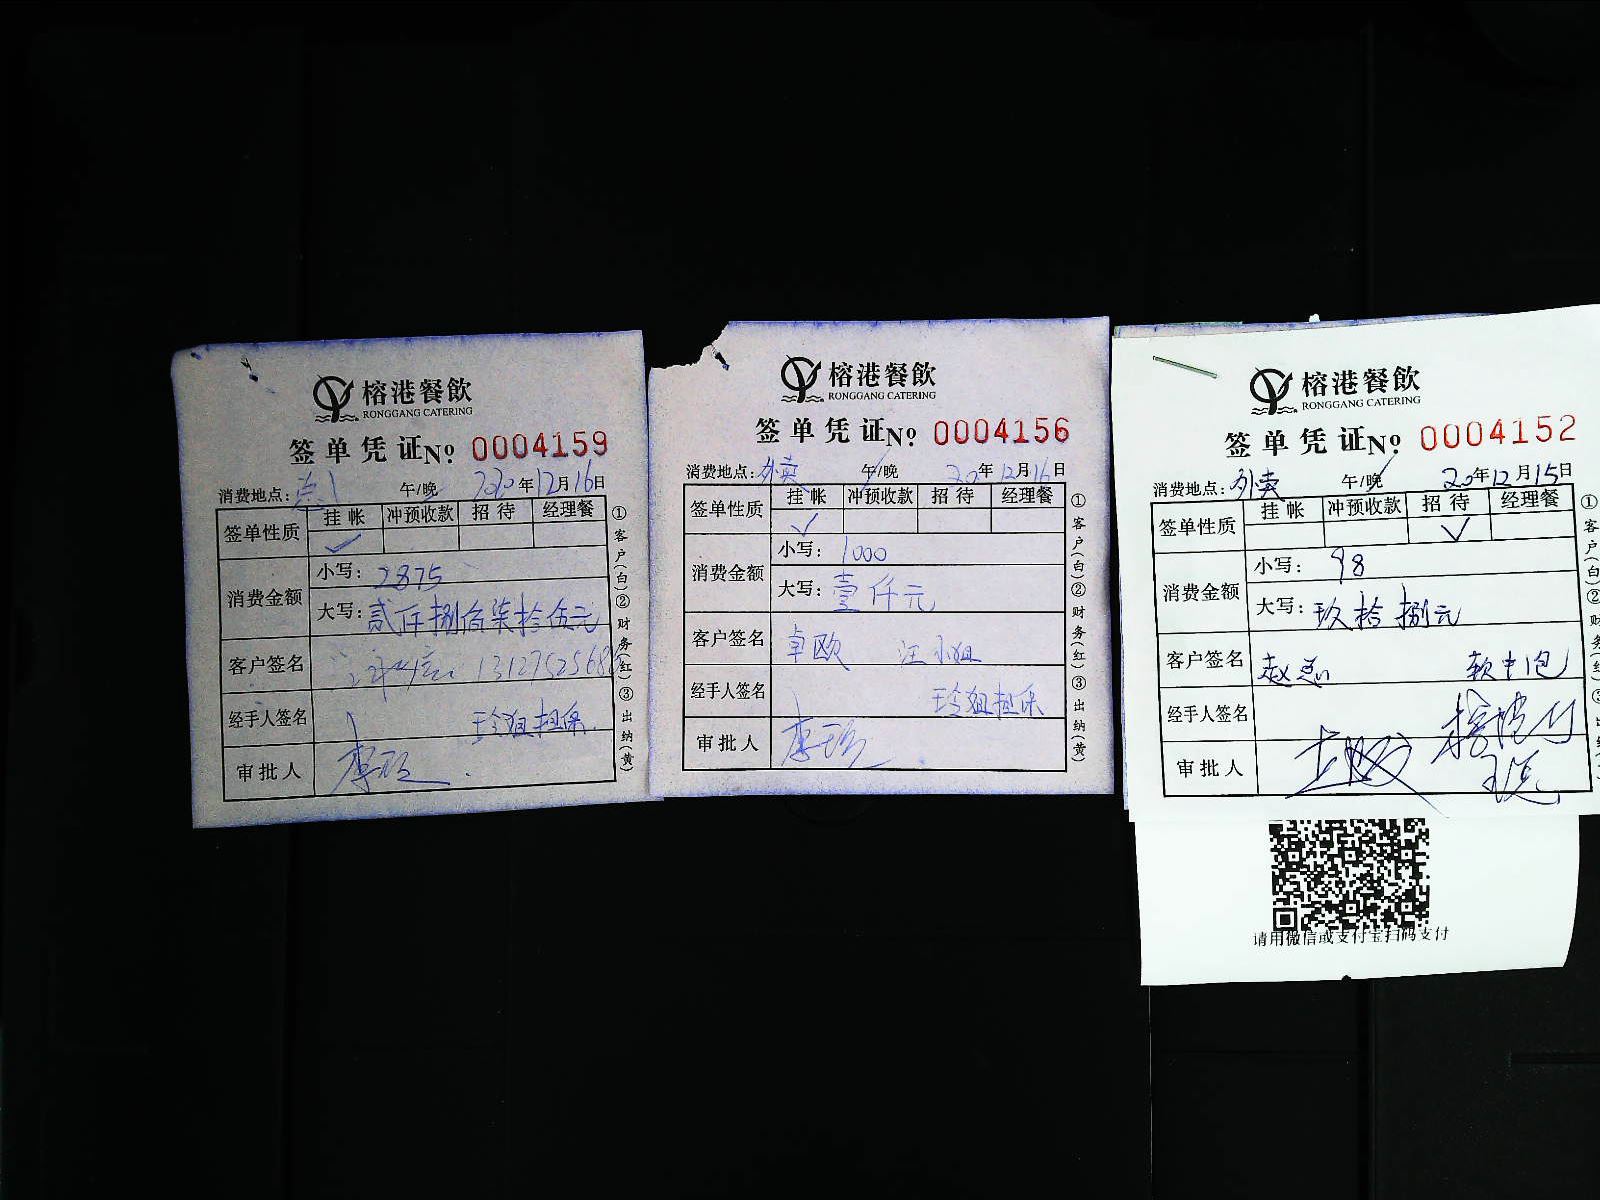 榕港餐飲
RONGGANG CATERING
签单凭证 No: 0004159
消费地点: 午/晚 2020年12月16日
签单性质 挂帐 冲预收款 招待 经理餐
✓
消费金额 小写: 2875
大写: 贰仟捌佰柒拾伍元
客户签名
经手人签名 玲姐担保
审批人
①客户(白)②财务(红)③出纳(黄)
榕港餐飲
RONGGANG CATERING
签单凭证 No: 0004156
消费地点: 外卖 午/晚 20年12月16日
签单性质 挂帐 冲预收款 招待 经理餐
✓
消费金额 小写: 1000
大写: 壹仟元
客户签名 卓欧 汪小姐
经手人签名 玲姐担保
审批人
①客户(白)②财务(红)③出纳(黄)
榕港餐飲
RONGGANG CATERING
签单凭证 No: 0004152
消费地点: 外卖 午/晚 20年12月15日
签单性质 挂帐 冲预收款 招待 经理餐
✓
消费金额 小写: 98
大写: 玖拾捌元
客户签名 赵总 软中1包
经手人签名
审批人
①客户(白)②财
请用微信或支付宝扫码支付